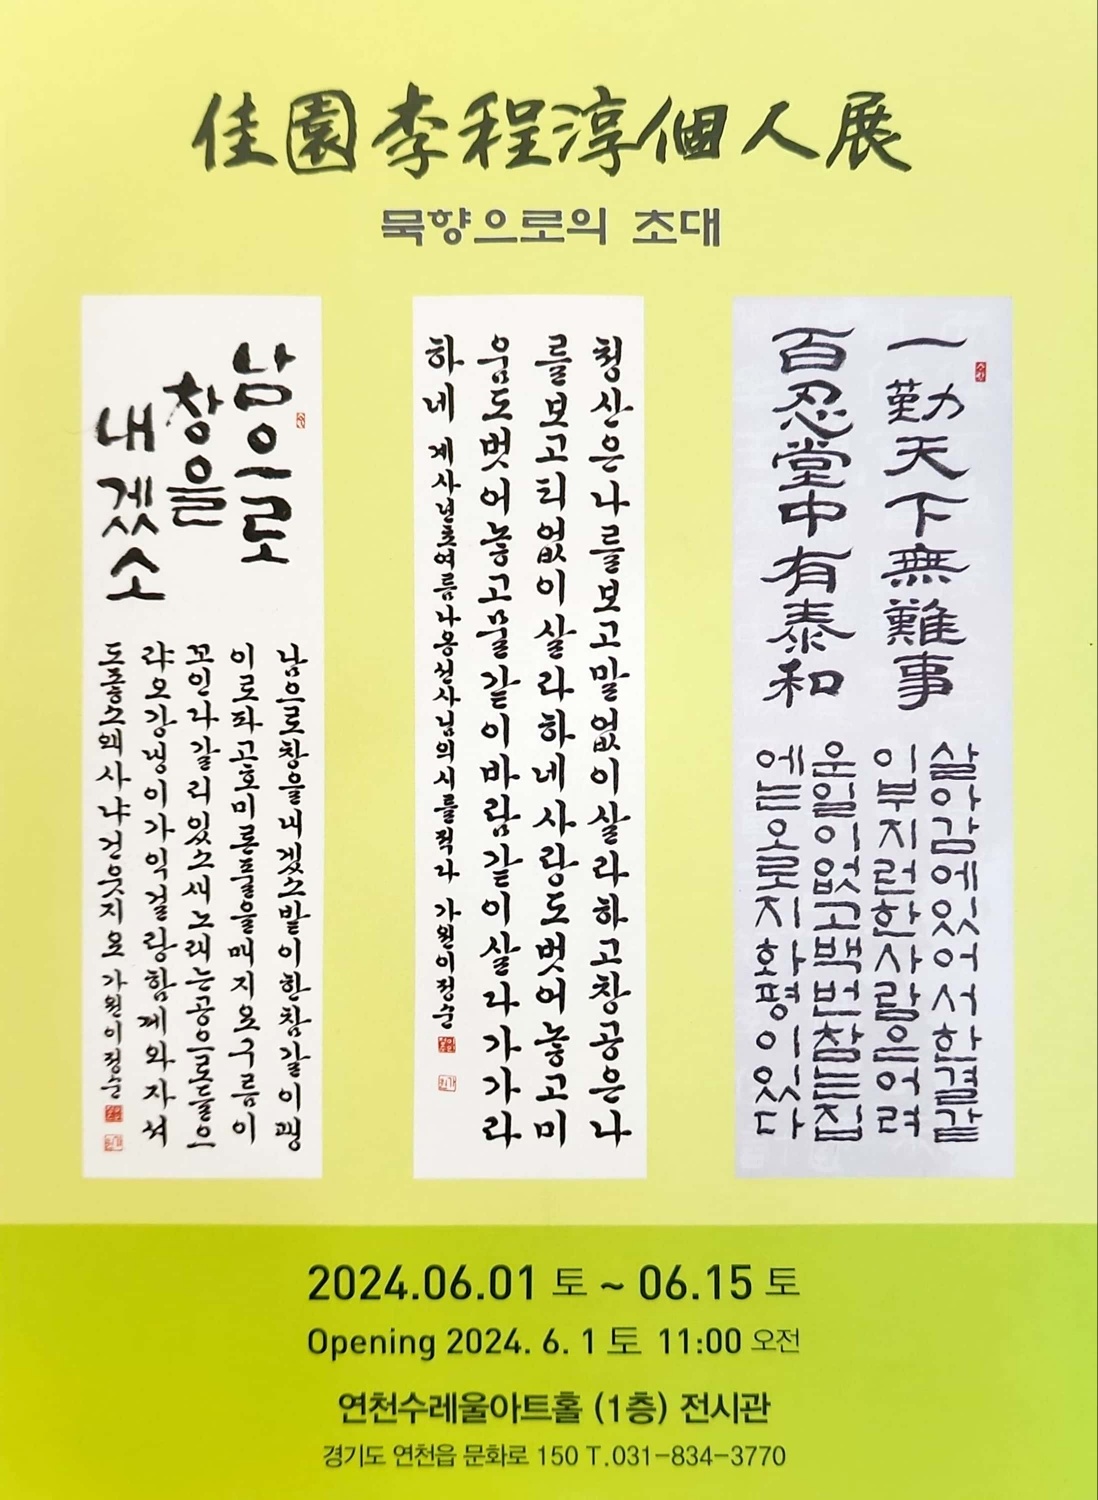 佳園李程淳個人展
묵향으로의 초대
남으로
창을
내겠소
남으로창을내겠소밭이한참갈이괭
이로파고호미론풀을매지요구름이
꼬인다갈리있소새노래는공으로들으
랴오강냉이가익걸랑함께와자셔
도좋소왜사냐건웃지요 가원이정순
청산은나를보고말없이살라하고창공은나
를보고티없이살라하네사랑도벗어놓고미
움도벗어놓고물같이바람같이살다가가라
하네 계사년초여름나옹선사님의시를적다 가원이정순
一勤天下無難事
百忍堂中有泰和
살아감에있어서한결같
이부지런한사람은어려
운일이없고백번참는집
에는오로지화평이있다
2024.06.01 토 ~ 06.15 토
Opening 2024. 6. 1 토 11:00 오전
연천수레울아트홀 (1층) 전시관
경기도 연천읍 문화로 150 T.031-834-3770